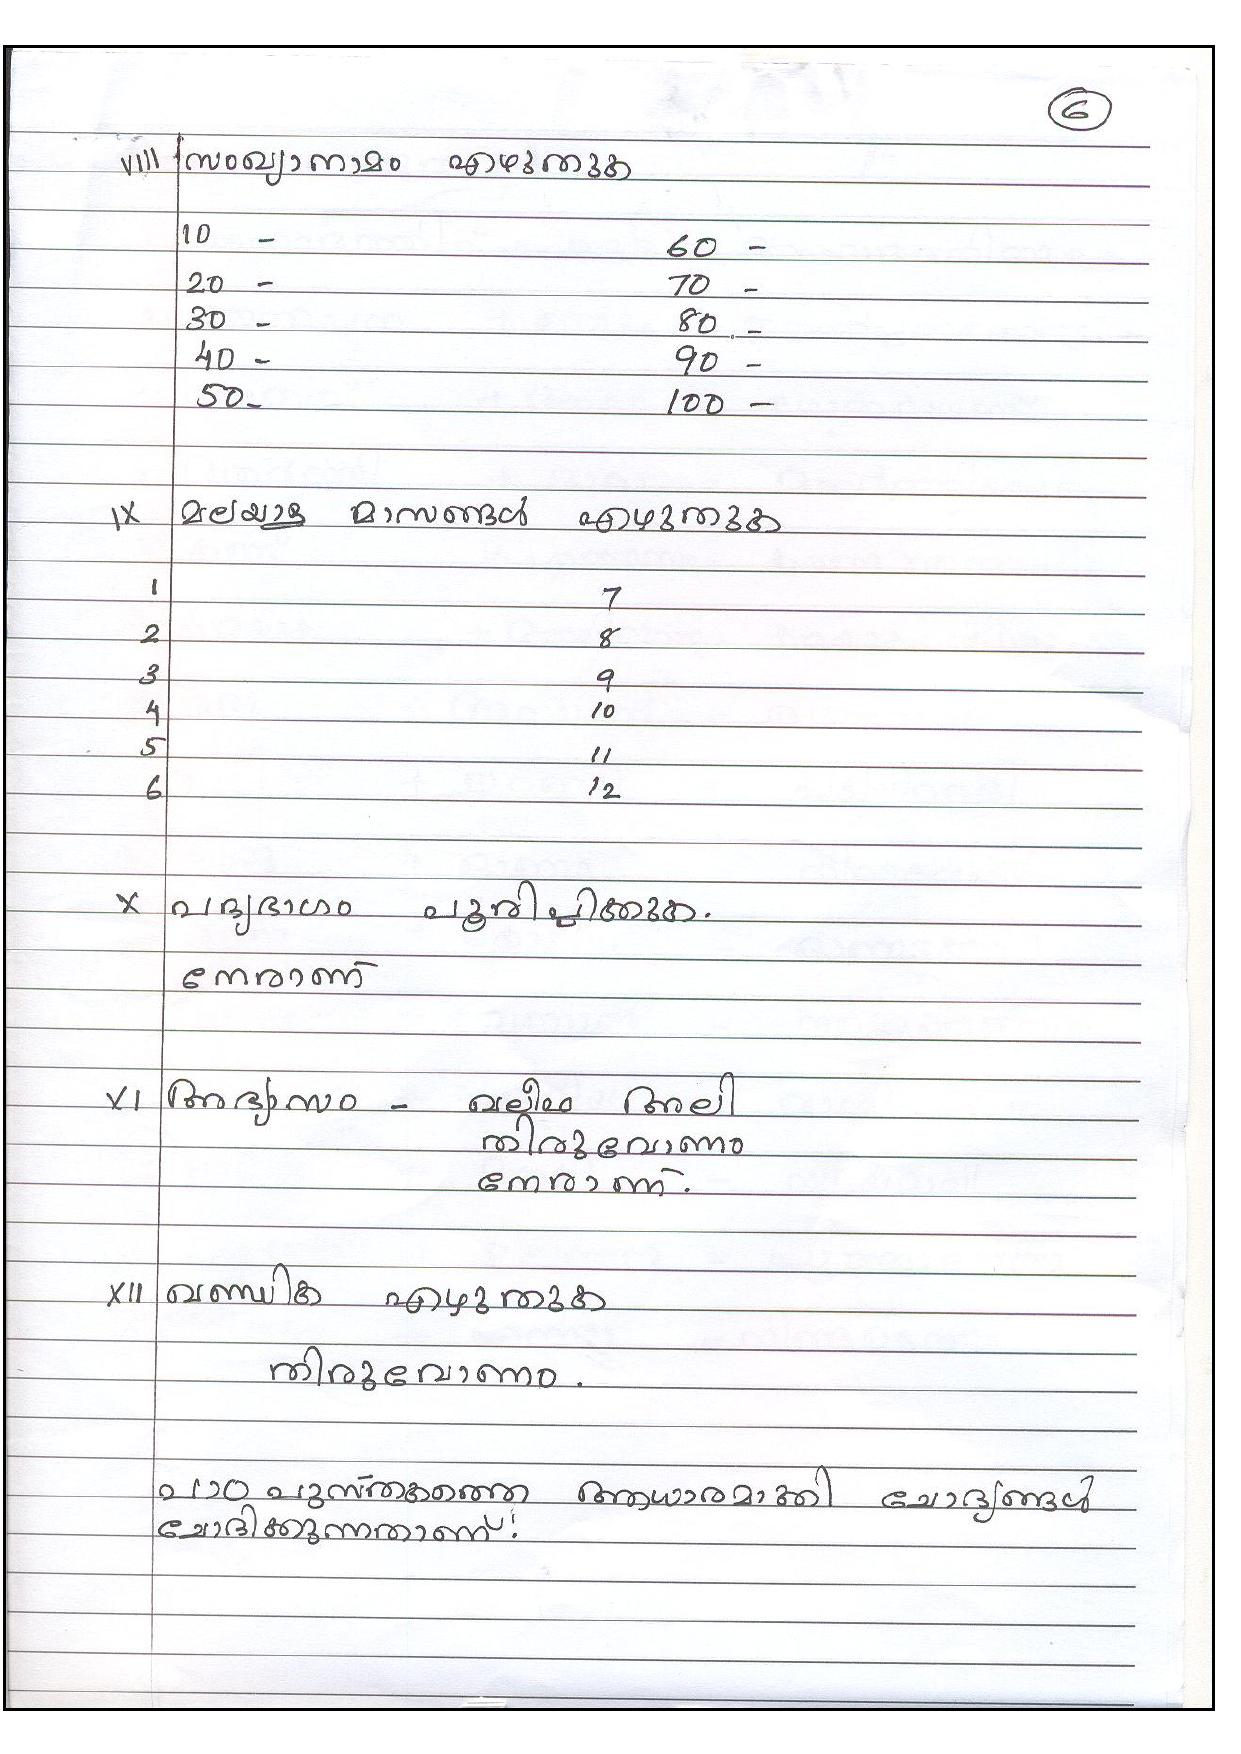 6
VIII സംഖ്യാനാമം എഴുതുക
10 - 60 -
20 - 70 -
30 - 80 -
40 - 90 -
50 - 100 -
IX മലയാള മാസങ്ങൾ എഴുതുക
1 7
2 8
3 9
4 10
5 11
6 12
X പദ്യഭാഗം പൂരിപ്പിക്കുക.
നേരാണ്
XI അഭ്യാസം - വലീമ അലി
തിരുവോണം
നേരാണ്.
XII ഖണ്ഡിക എഴുതുക
തിരുവോണം.
പാഠപുസ്തകത്തെ ആധാരമാക്കി ചോദ്യങ്ങൾ
ചോദിക്കുന്നതാണ്!